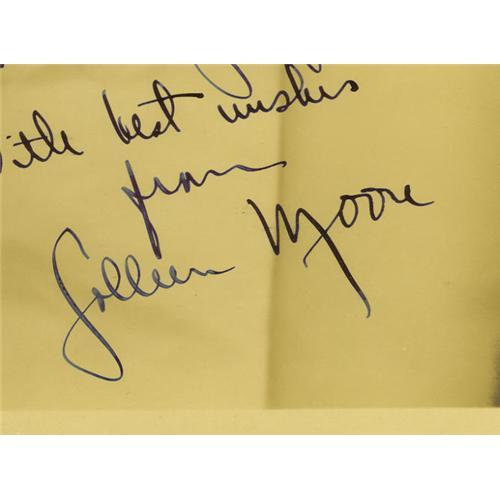 With best wishes
from
Colleen Moore